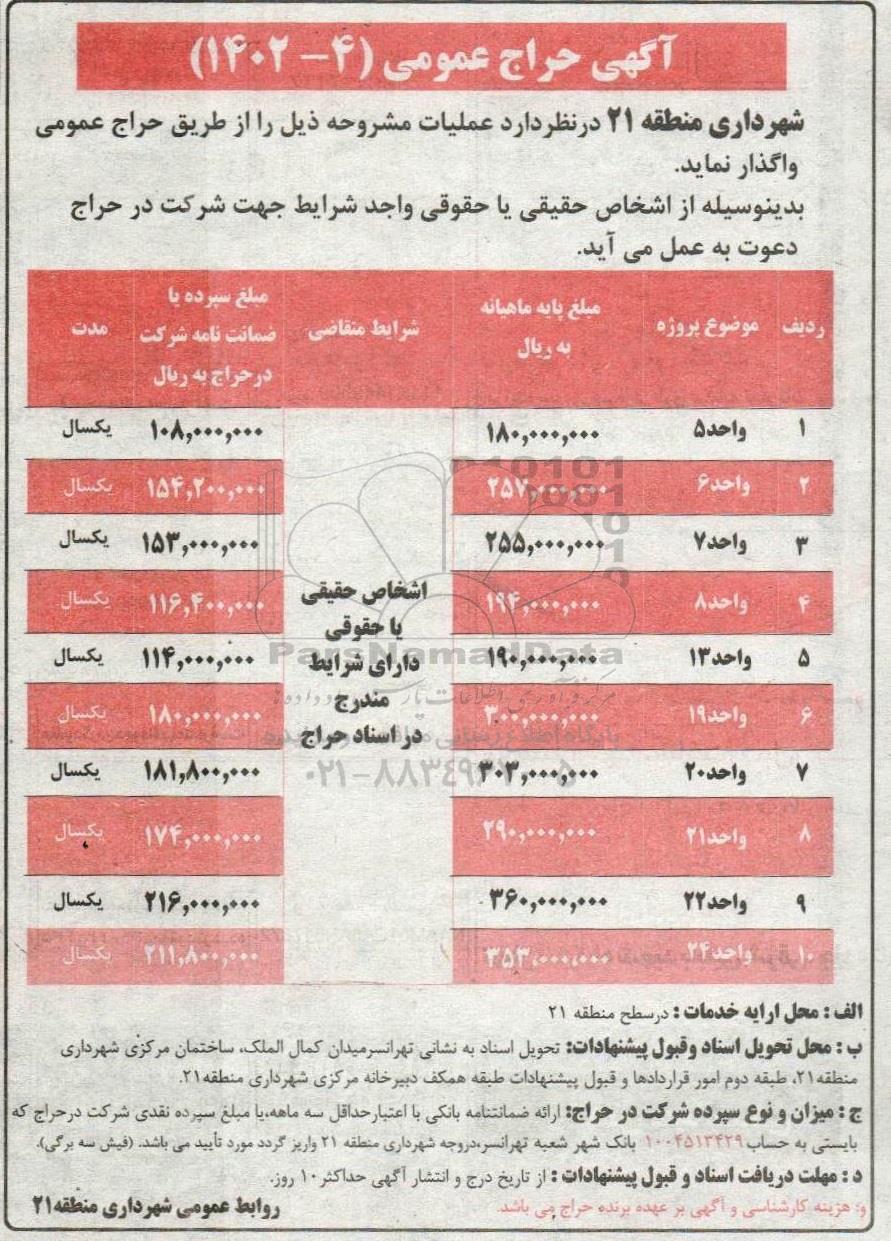 آگهی حراج عمومی (۴- ۱۴۰۲)
شهرداری منطقه ۲۱ درنظردارد عملیات مشروحه ذیل را از طریق حراج عمومی
واگذار نماید.
بدینوسیله از اشخاص حقیقی یا حقوقی واجد شرایط جهت شرکت در حراج
دعوت به عمل می آید.
ردیف موضوع پروژه مبلغ پایه ماهیانه به ریال شرایط متقاضی مبلغ سپرده یا ضمانت نامه شرکت درحراج به ریال مدت
۱ واحد۵ ۱۸۰,۰۰۰,۰۰۰ ۱۰۸,۰۰۰,۰۰۰ یکسال
۲ واحد۶ ۲۵۷,۰۰۰,۰۰۰ ۱۵۴,۲۰۰,۰۰۰ یکسال
۳ واحد۷ ۲۵۵,۰۰۰,۰۰۰ ۱۵۳,۰۰۰,۰۰۰ یکسال
۴ واحد۸ ۱۹۴,۰۰۰,۰۰۰ ۱۱۶,۴۰۰,۰۰۰ یکسال
۵ واحد۱۳ ۱۹۰,۰۰۰,۰۰۰ ۱۱۴,۰۰۰,۰۰۰ یکسال
۶ واحد۱۹ ۳۰۰,۰۰۰,۰۰۰ ۱۸۰,۰۰۰,۰۰۰ یکسال
۷ واحد۲۰ ۳۰۳,۰۰۰,۰۰۰ ۱۸۱,۸۰۰,۰۰۰ یکسال
۸ واحد۲۱ ۲۹۰,۰۰۰,۰۰۰ ۱۷۴,۰۰۰,۰۰۰ یکسال
۹ واحد۲۲ ۳۶۰,۰۰۰,۰۰۰ ۲۱۶,۰۰۰,۰۰۰ یکسال
۱۰ واحد۲۴ ۳۵۳,۰۰۰,۰۰۰ ۲۱۱,۸۰۰,۰۰۰ یکسال
اشخاص حقیقی
یا حقوقی
دارای شرایط
مندرج
در اسناد حراج
ParsNamadData
الف : محل ارایه خدمات : درسطح منطقه ۲۱
ب : محل تحویل اسناد وقبول پیشنهادات: تحویل اسناد به نشانی تهرانسرمیدان کمال الملک، ساختمان مرکزی شهرداری
منطقه۲۱، طبقه دوم امور قراردادها و قبول پیشنهادات طبقه همکف دبیرخانه مرکزی شهرداری منطقه۲۱.
ج : میزان و نوع سپرده شرکت در حراج: ارائه ضمانتنامه بانکی با اعتبارحداقل سه ماهه،یا مبلغ سپرده نقدی شرکت درحراج که
بایستی به حساب ۱۰۰۴۵۱۳۴۲۹ بانک شهر شعبه تهرانسر،دروجه شهرداری منطقه ۲۱ واریز گردد مورد تأیید می باشد. (فیش سه برگی).
د : مهلت دریافت اسناد و قبول پیشنهادات : از تاریخ درج و انتشار آگهی حداکثر۱۰ روز.
و: هزینه کارشناسی و آگهی بر عهده برنده حراج می باشد.
روابط عمومی شهرداری منطقه۲۱